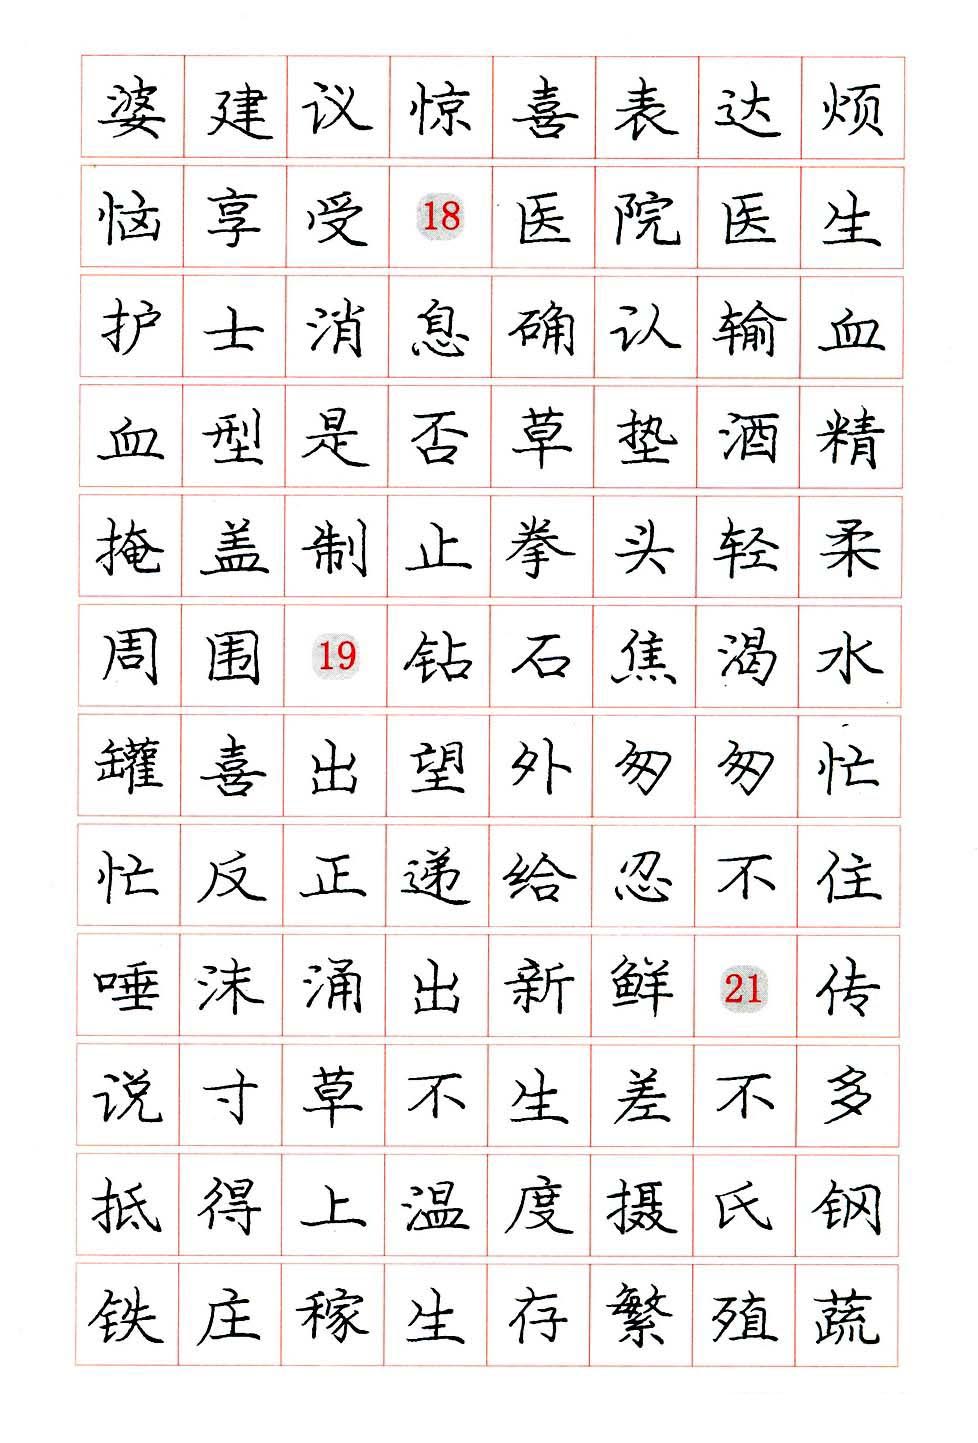 婆建议惊喜表达烦
恼享受18医院医生
护士消息确认输血
血型是否草垫酒精
掩盖制止拳头轻柔
周围19钻石焦渴水
罐喜出望外匆匆忙
忙反正递给忍不住
唾沫涌出新鲜21传
说寸草不生差不多
抵得上温度摄氏钢
铁庄稼生存繁殖蔬